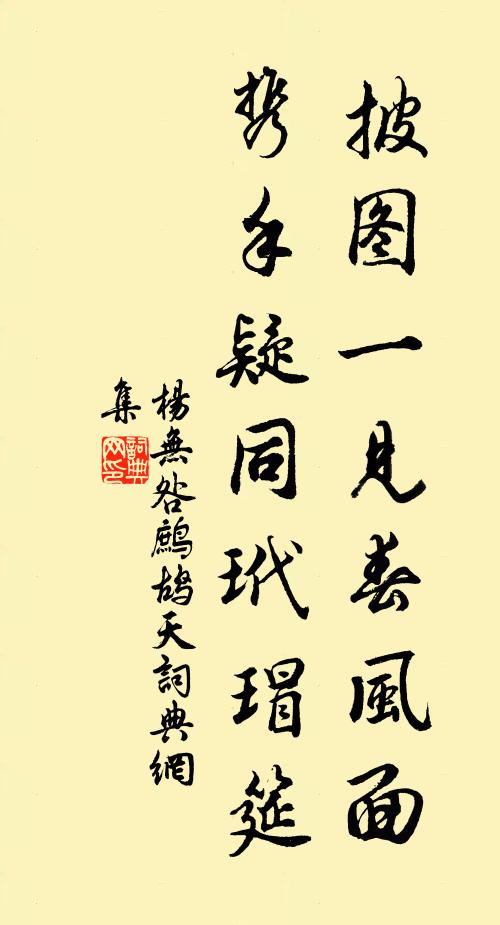 披图一見春風面
携手疑同玳瑁筵
楊無咎鷓鴣天詞典網
集
詞典网印